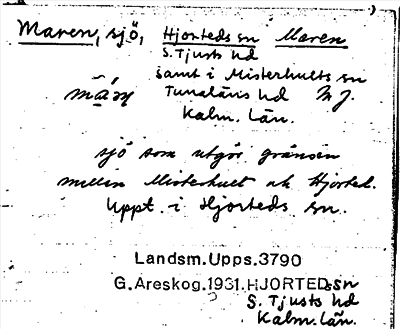 Maren, sjö, Hjorteds sn Maren
S. Tjusts hd
samt i Misterhults sn
Tunaläns hd M J.
Kalm. Län.
sjö som utgör gränsen
mellan Misterhult och Hjorted.
Uppt. i Hjorteds sn.
Landsm.Upps.3790
G.Areskog.1931.HJORTED sn
S. Tjusts hd
Kalm. län.